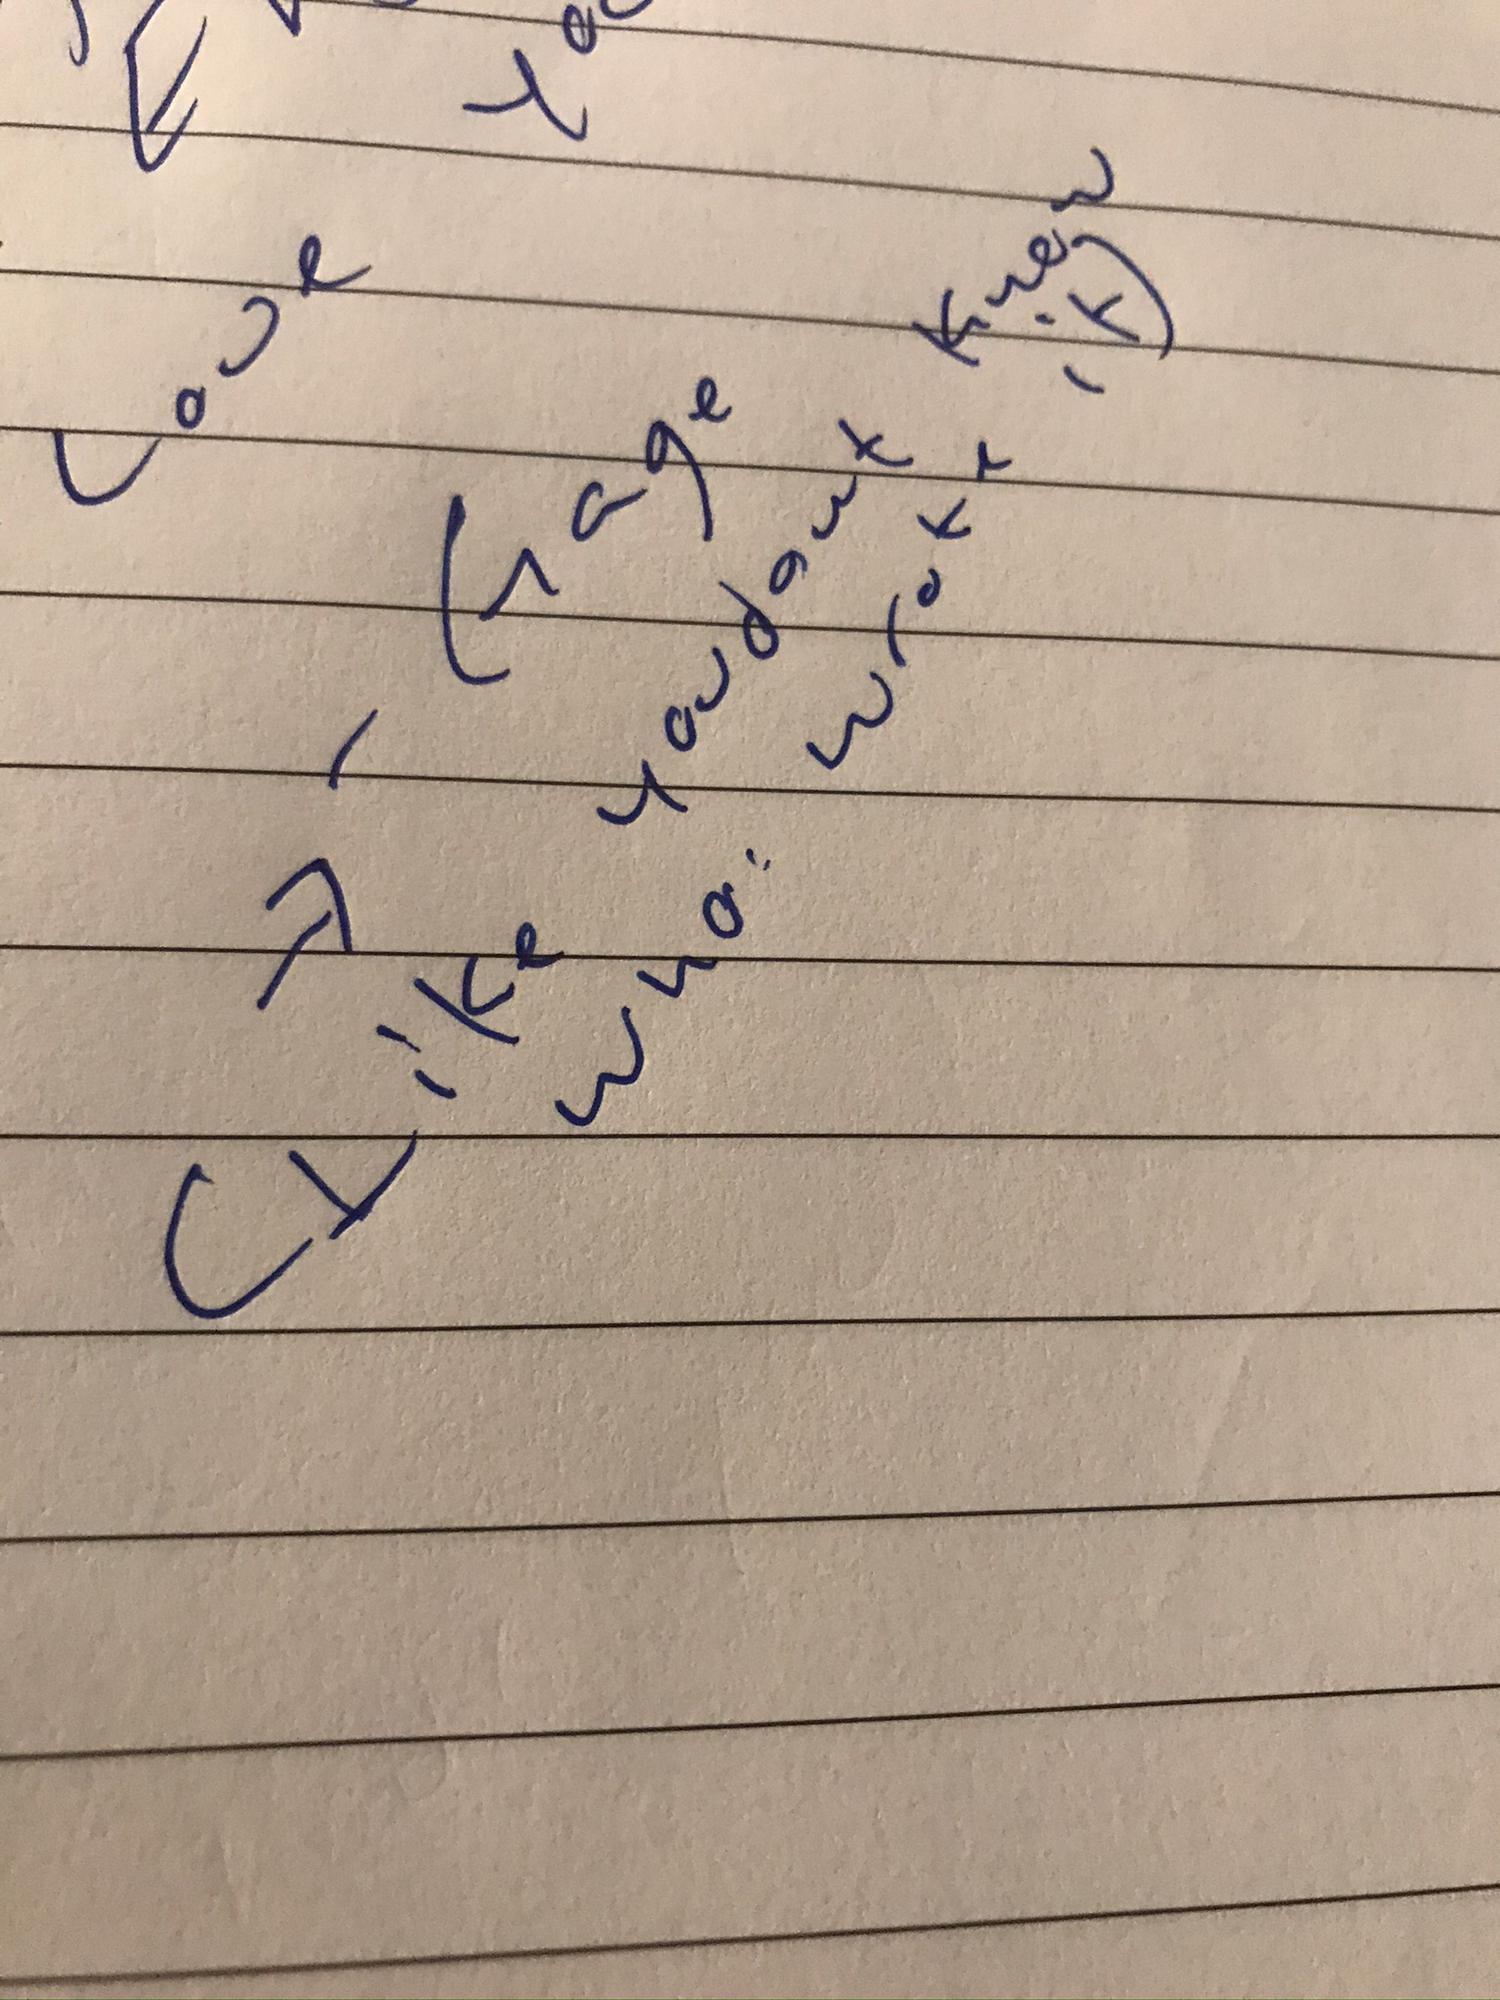 You
Love
Gage
(Like you dont know
who wrote it)